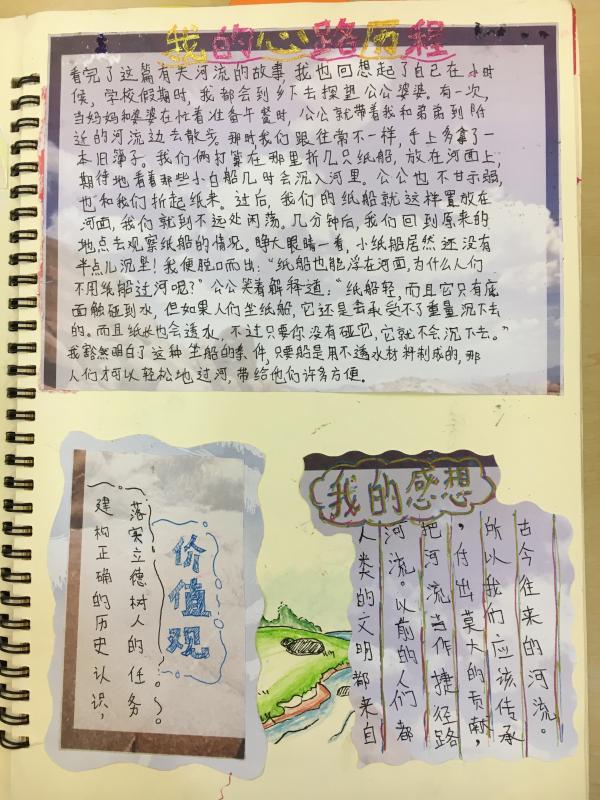 我的心路历程
看完了这篇有关河流的故事,我也回想起了自己在小时
候,学校假期时,我都会到乡下去探望公公婆婆。有一次,
当妈妈和婆婆在忙着准备午餐时,公公就带着我和弟弟到附
近的河流边去散步。那时我们跟往常不一样,手上多拿了一
本旧簿子。我们俩打算在那里折几只纸船,放在河面上,
期待地看着那些小白船几时会沉入河里。公公也不甘示弱,
也和我们折起纸来。过后,我们的纸船就这样置放在
河面,我们就到不远处闲荡。几分钟后,我们回到原来的
地点去观察纸船的情况。睁大眼睛一看,小纸船居然还没有
半点儿沉里!我便脱口而出:“纸船也能浮在河面,为什么人们
不用纸船过河呢?”公公笑着解释道:“纸船轻,而且它只有底
面触碰到水,但如果人们坐纸船,它还是会承受不了重量沉下去
的。而且纸张也会透水,不过只要你没有碰它,它就不会沉下去。”
我豁然明白了这种坐船的条件,只要船是用不透水材料制成的,那
人们才可以轻松地过河,带给他们许多方便。
价值观
建构正确的历史认识,
落实立德树人的任务。
我的感想
人类的文明都来自
河流。以前的人们都
把河流当作捷径路
,付出莫大的贡献,
所以我们应该传承
古今往来的河流。